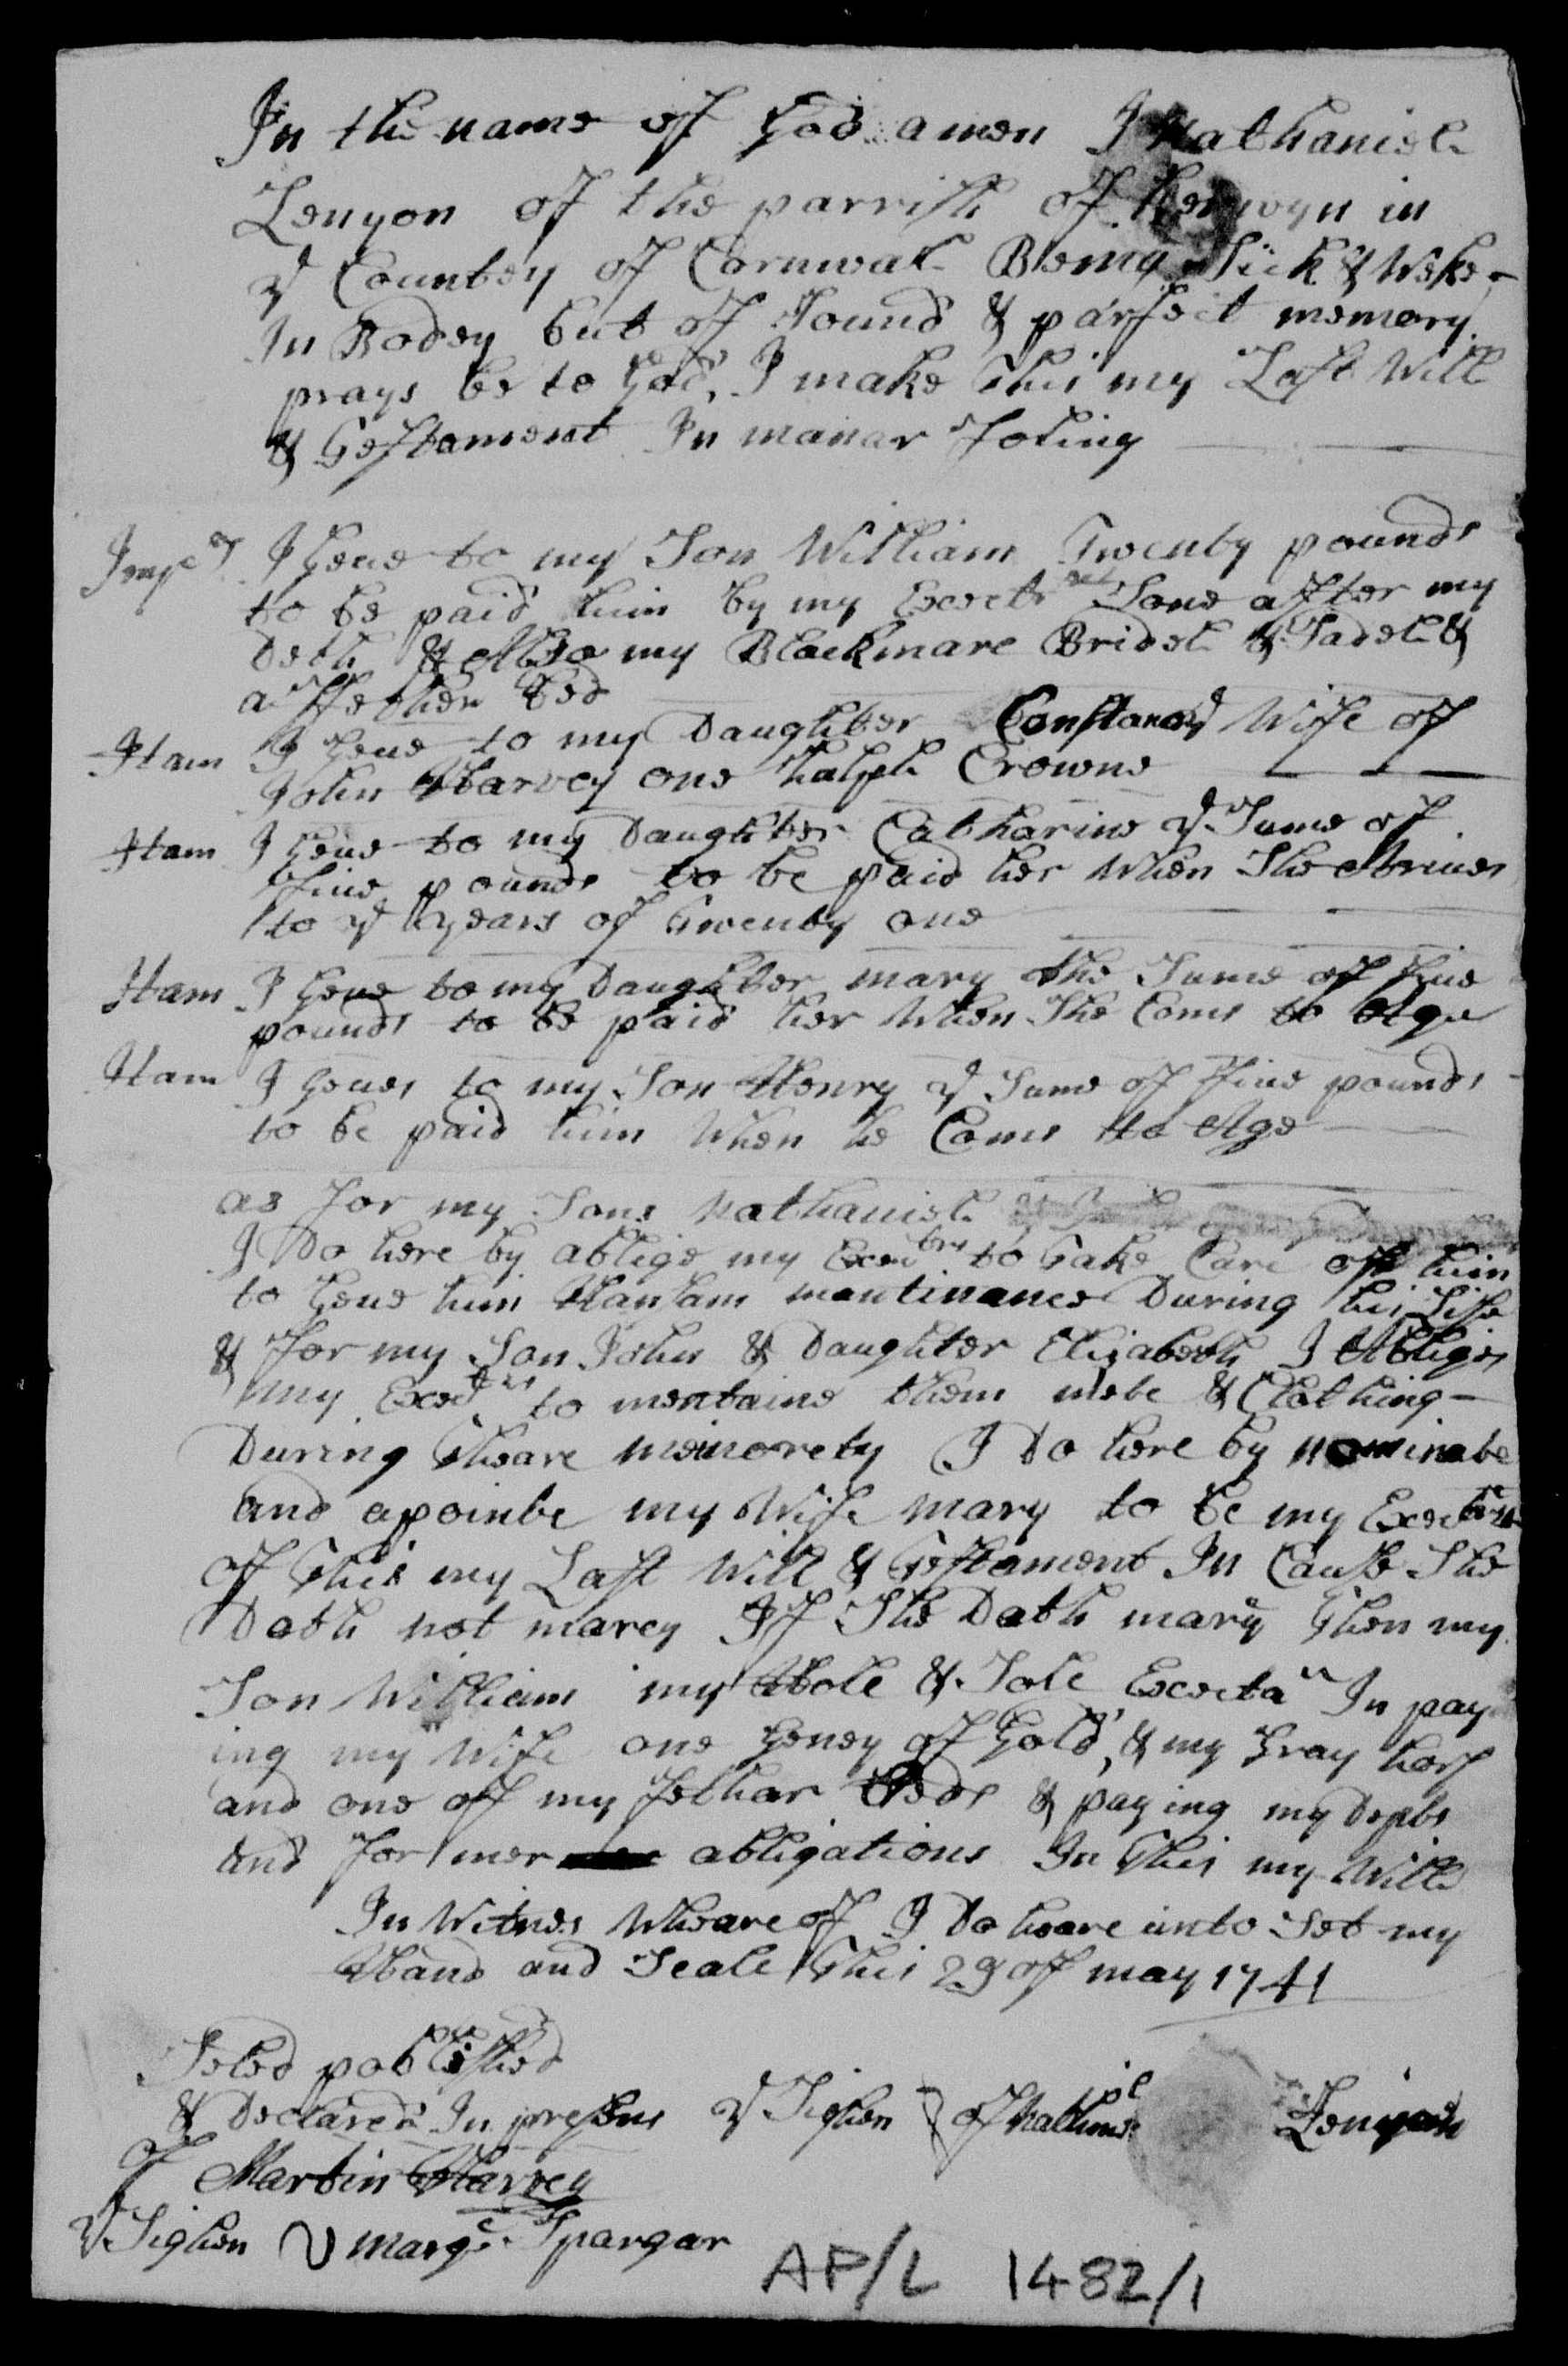 In the name of God amen I Nathaniel
Lenyon of the parrish of Kenwyn in
ye Countey of Cornwal Being Sick & Weke
In Bodey but of Sound & parfect memory
prays be to God, I make this my Last Will
& Testament In manar foling
I Geue to my Son William Twenty pounds
to be paid him by my Execters Sone after my
Deth & Also my Black mare Bridel & Sadel &
a ffether bed
Itam I Geue to my Daughter Constance Wife of
John Harvey one halfe Crowne
Itam I Geue to my Daughter Catharine ye Sume of
ffiue pounds to be paid her When She Ariues
to ye years of Twenty one
Itam I Geue to my Daughter mary the Sume of fiue
pounds to be paid her When She Coms to Age
Itam I Geues to my Son Henry ye Sume of ffiue pounds
to be paid him When he Coms to Age
as for my Sons Nathaniel
I Do here by oblige my Exectrs to Take Care of him
to Geue him Hansam mentinance During his Life
& for my Son John & Daughter Elizabeth I Obliges
my Execters to mentaine them mete & Clothing
During Theare meinorety I Do here by nominate
and apointe my Wife mary to be my
of This my Last Will & Testament In Cause She
Doth not marey If She Doth mary Then my
Son William my Hole & Sole Execta In pay
ing my Wife one Geney of Gold, & my Gray hors
and one of my fethar Beds & paying my Depts
and for mer obligations In This my Will
In Witnes Wheare of I Do heare unto Set my
Hand and Seale This 29 of may 1741
Seled published
& Declared In presens ye Sighen of Nathaniel Lenyon
of Martin Harvey
ye Sighen Marge Spargar
AP/L 1482/1